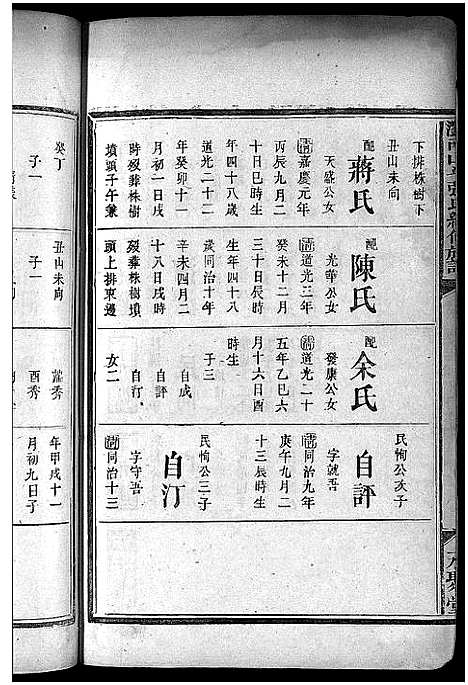 下排株樹下
丑山未向
配
蔣氏
天盛公女
清嘉慶元年
丙辰九月二
十日巳時生
年四十八歲
道光二十二
年癸卯十一
月初一日戌
時歿葬株樹
墳頭子午兼
配
陳氏
光華公女
清道光三年
癸未十二月
三十日辰時
生年四十八
歲同治十年
辛未四月二
十八日戌時
歿葬株樹墳
頭上排東邊
配
余氏
發康公女
清道光二十
五年乙巳六
月十六日酉
時生
子三
自成
自評
自汀
女二
民恂公次子
自評
字就吾
清同治九年
庚午九月二
十三辰時生
民恂公三子
自汀
字守吾
清同治十三
癸丁
子一
丑山未向
子一
酉秀
年甲戌十一
月初九日子